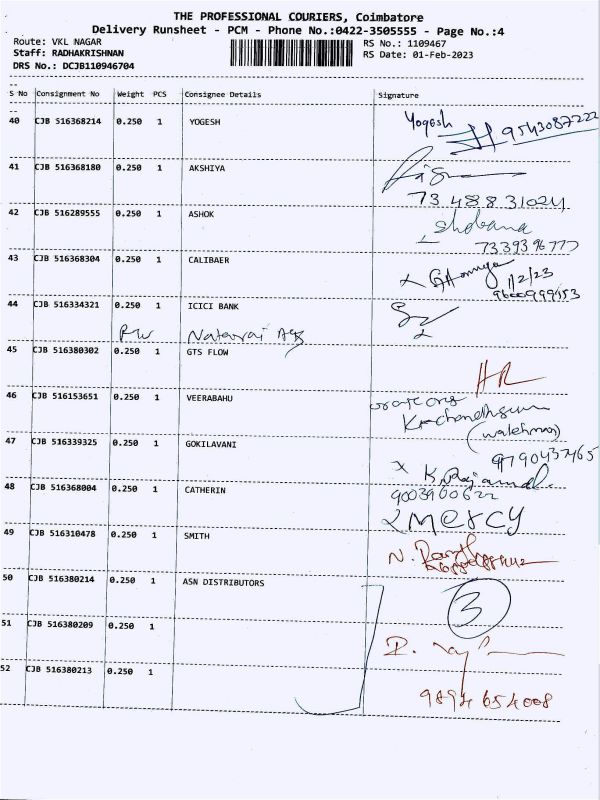 THE PROFESSIONAL COURIERS, Coimbatore
Delivery Runsheet - PCM - Phone No.:0422-3505555 - Page No.:4
Route: VKL NAGAR
RS No.: 1109467
Staff: RADHAKRISHNAN
RS Date: 01-Feb-2023
DRS No.: DCJB110946704
S No Consignment No Weight PCS Consignee Details Signature
40 CJB 516368214 0.250 1 YOGESH Yogesh 9543087222
41 CJB 516368180 0.250 1 AKSHIYA
73 488 31024
42 CJB 516289555 0.250 1 ASHOK Shobana
7339396777
43 CJB 516368304 0.250 1 CALIBAER
1/2/23
44 CJB 516334321 0.250 1 ICICI BANK
45 CJB 516380302 0.250 1 GTS FLOW
46 CJB 516153651 0.250 1 VEERABAHU
(watchman)
47 CJB 516339325 0.250 1 GOKILAVANI 9790437465
48 CJB 516368004 0.250 1 CATHERIN 9003900622
MERCY
49 CJB 516310478 0.250 1 SMITH
50 CJB 516380214 0.250 1 ASN DISTRIBUTORS 3
51 CJB 516380209 0.250 1
52 CJB 516380213 0.250 1
9894 654008